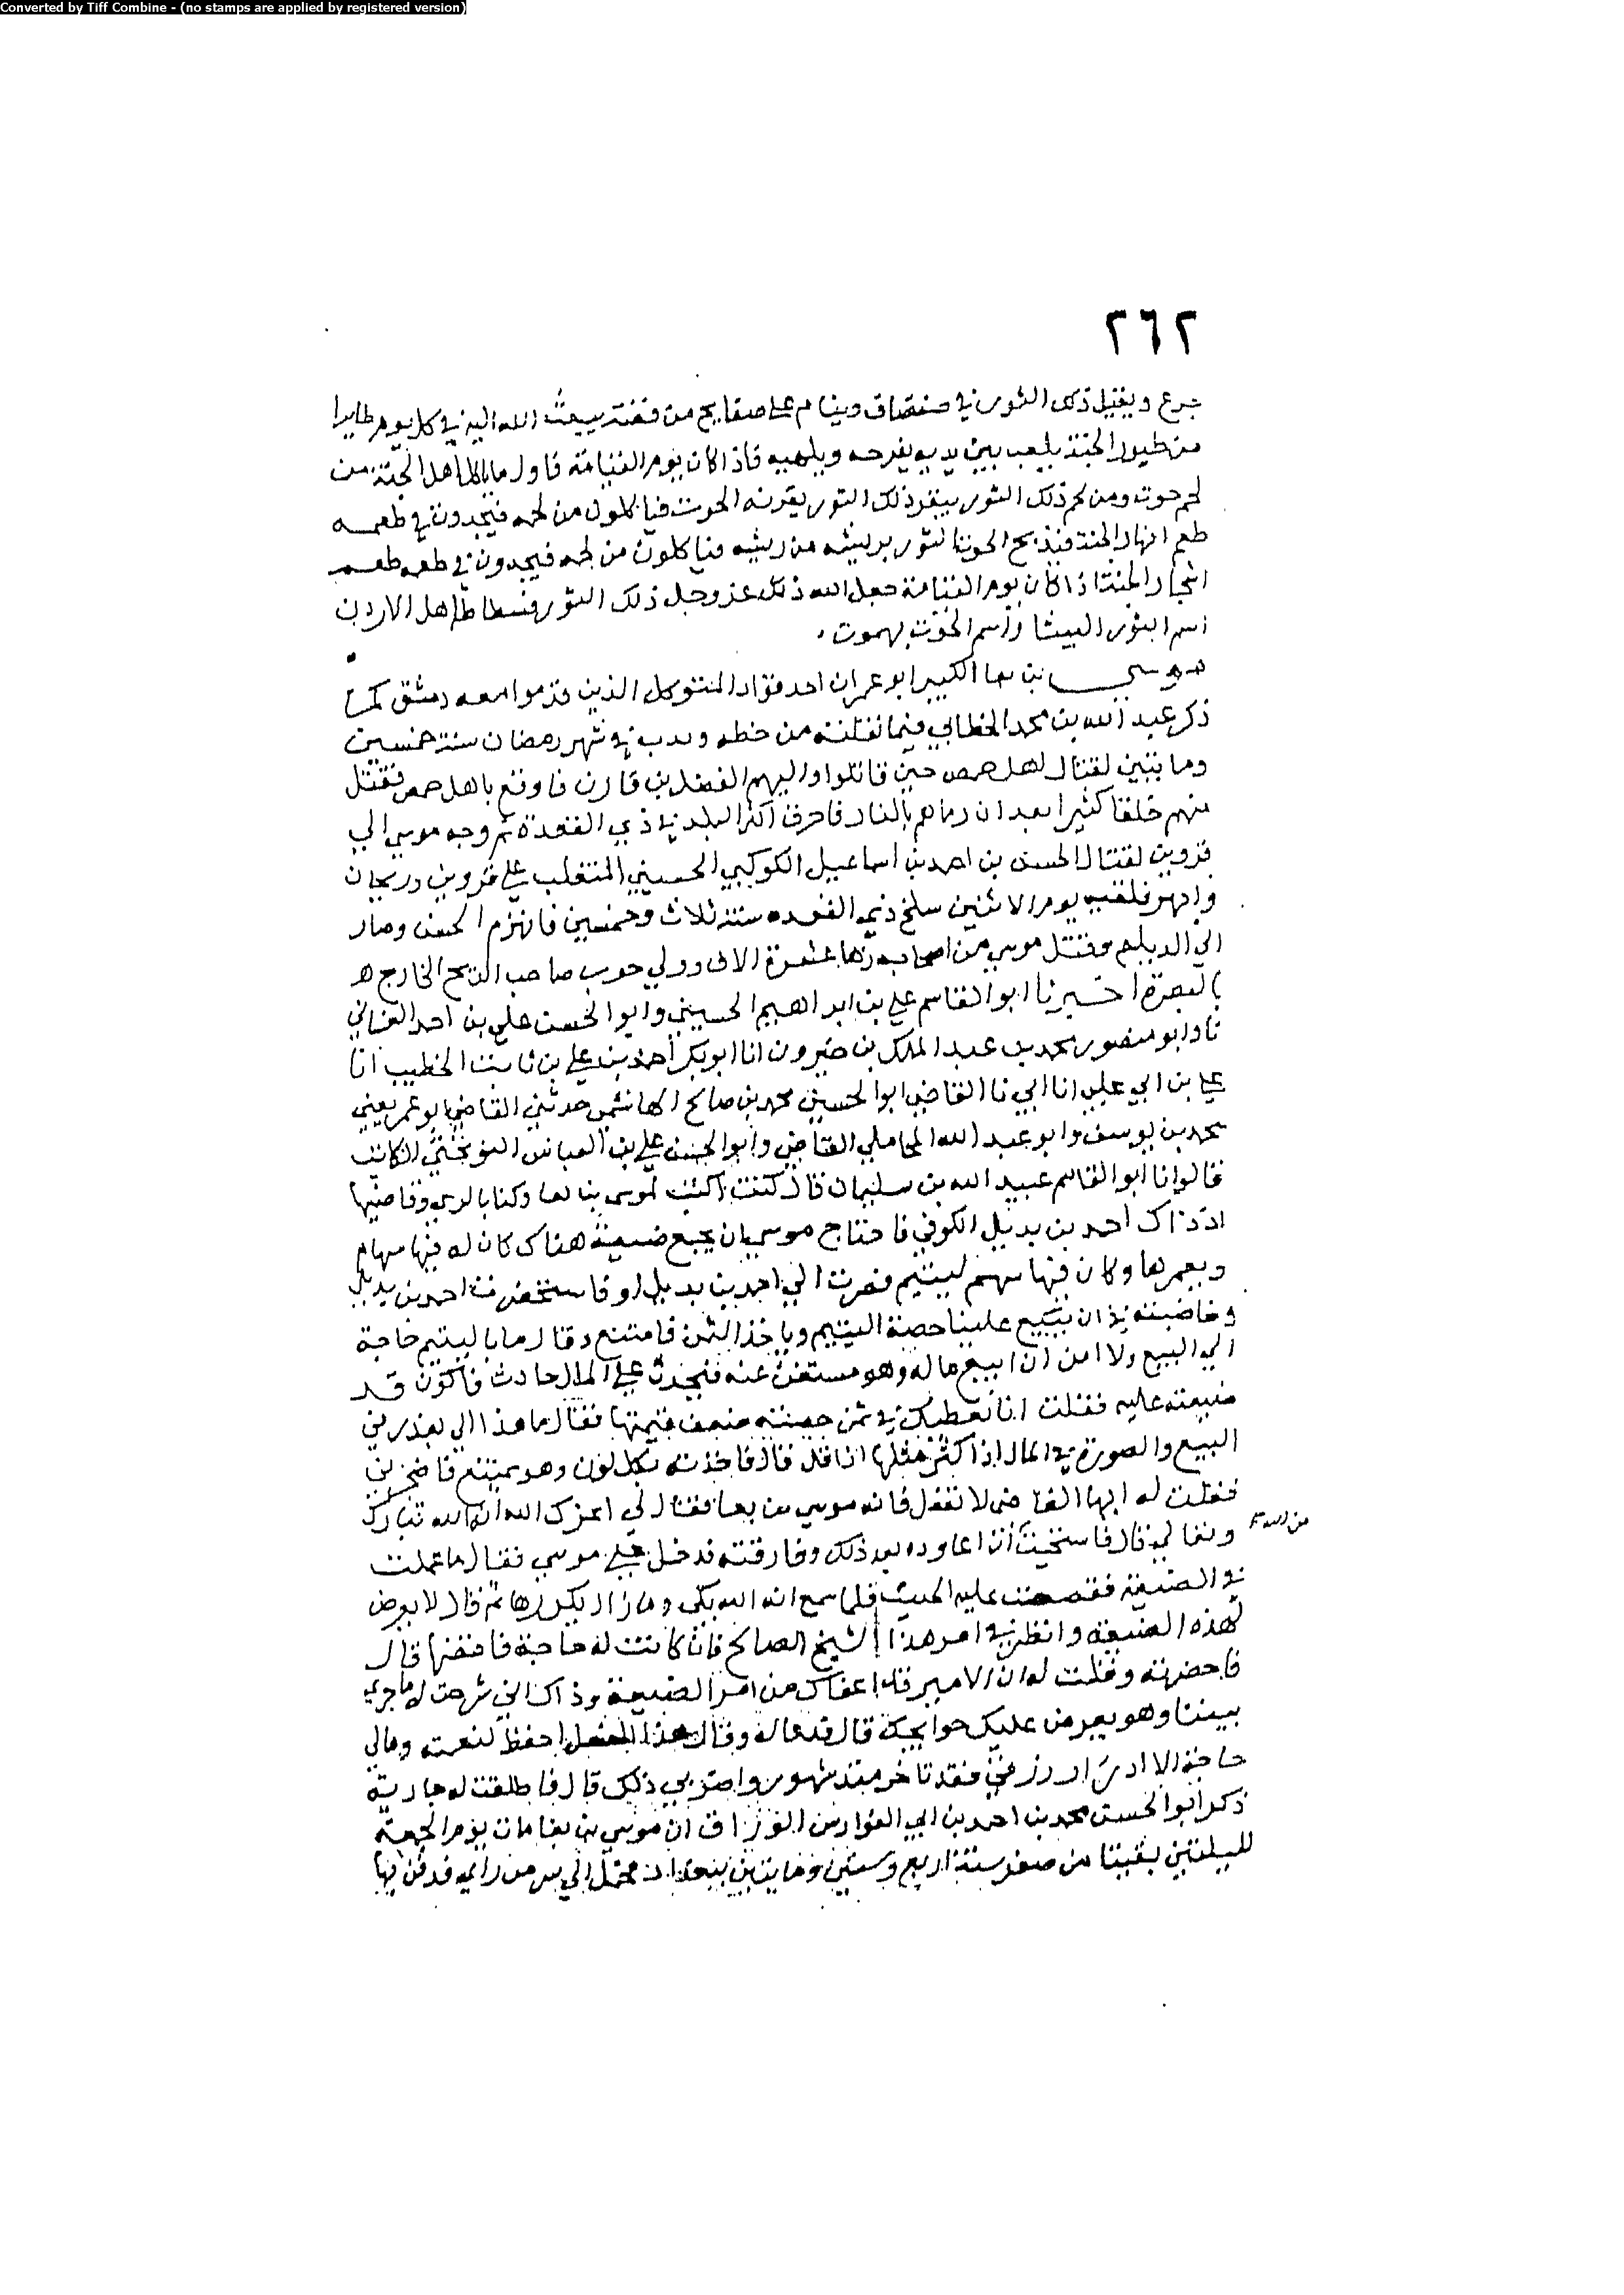 Converted by Tiff Combine - (no stamps are applied by registered version)
٢٦٢
جرع ويقيل ذلك الثور في ضفضاف وينام على صفايح من فضة يبعث الله اليه في كل يوم طايرا
من طيور الجنة يلعب بين يديه يفرحه ويلهيه فاذا كان يوم القيامة فاول ما ياكل اهل الجنة من
لحم حوت ومن لحم ذلك الثور ينفر ذلك الثور بقرنه الحوت فياكلون من لحمه فيجدون في طعمه
طعم انهار الجنة فيذبح الحوت الثور بريشه من ريشه فياكلون من لحمه فيجدون في طعمه طعم
اشجار الجنة اذا كان يوم القيامة جعل الله ذلك عز وجل ذلك الثور فسطاط اهل الاردن
اسم الثور البيثا واسم الحوت بهموت
موسى بن بغا الكبير ابو عمران احد قواد المتوكل الذين قدموا معه دمشق كما
ذكر عبد الله بن محمد الخطابي فيما نقلته من خطه وندب في شهر رمضان سنة خمسين
وماتين لقتال اهل حمص حين قاتلوا واليهم الفضل بن قارن فاوقع باهل حمص فقتل
منهم خلقا كثيرا بعد ان رماهم بالنار فاحرق اكثر البلد في ذي القعدة ثم وجه موسى الى
قزوين لقتال الحسن بن احمد بن اسماعيل الكوكبي الحسيني المتغلب على قزوين وزنجان
وابهر فلقيه يوم الاثنين سلخ ذي القعده سنة ثلاث وخمسين فانهزم الحسن وصار
الى الديلم وقتل موسى من اصحابه زها عشرة الاف وولي حرب صاحب الزنج الخارج
بالبصرة اخبرنا ابو القاسم علي بن ابراهيم الحسيني وابو الحسن علي بن احمد الغساني
نا وابو منصور محمد بن عبد الملك بن خيرون انا ابو بكر احمد بن علي بن ثابت الخطيب انا
علي بن ابي علي انا ابي نا القاضي ابو الحسين محمد بن صالح الهاشمي حدثني القاضي ابو عمر يعني
محمد بن يوسف وابو عبد الله المحاملي القاضي وابو الحسن علي بن العباس النوبختي الكاتب
قالوا نا ابو القاسم عبيد الله بن سليمان قال كنت اكتب لموسى بن بغا وكنا بالري وقاضيها
اذ ذاك احمد بن بديل الكوفي فاحتاج موسى ان يجمع ضيعة هناك كان له فيها سهام
ويعمرها وكان فيها سهم ليتيم فصرت الى احمد بن بديل او فاستحضرت احمد بن بديل
وخاطبته في ان يبيع علينا حصة اليتيم وياخذ الثمن فامتنع وقال ما باليتيم حاجة
الى البيع ولا امن ان ابيع ماله وهو مستغن عنه فيحدث على المال حادث فاكون قد
ضيعته عليه فقلت انا نعطيك في ثمن حصته ضعف قيمتها فقال ما هذا الي بعذر في
البيع والصورة في المال اذا كثر مثلها اذا قل قال فاخذته بكل لون وهو يمتنع فاضجرني
فقلت له ايها القاضي لا تفعل فانه موسى بن بغا فقال لي اعزك الله انه الله تبارك
وتعالى قال فاستحييت ان اعاوده بعد ذلك وفارقته فدخل على موسى فقال ما عملت
في الضيعة فقصصت عليه الحديث فلما سمع انه الله بكى وما زال يكررها ثم قال لا تعرض
لهذه الضيعة وانظر في امر هذا الشيخ الصالح فان كانت له حاجة فاقضها قال
فاحضرته وقلت له ان الامير قد اعفاك من امر الضيعة وذاك اني شرحت له ما جرى
بيننا وهو يعرض عليك حوايجك قال فدعا له وقال هذا الفعل احفظ لنعمته ومالي
حاجة الا ادرار رزقي فقد تاخر منذ شهور واضر بي ذلك قال فاطلقت له جاريه
ذكر ابو الحسن محمد بن احمد بن ابي الفوارس الوراق ان موسى بن بغا مات يوم الجمعة
لليلتين بقيتا من صفر سنة اربع وستين وماتين ببغداد حمل الى سر من راى فدفن بها